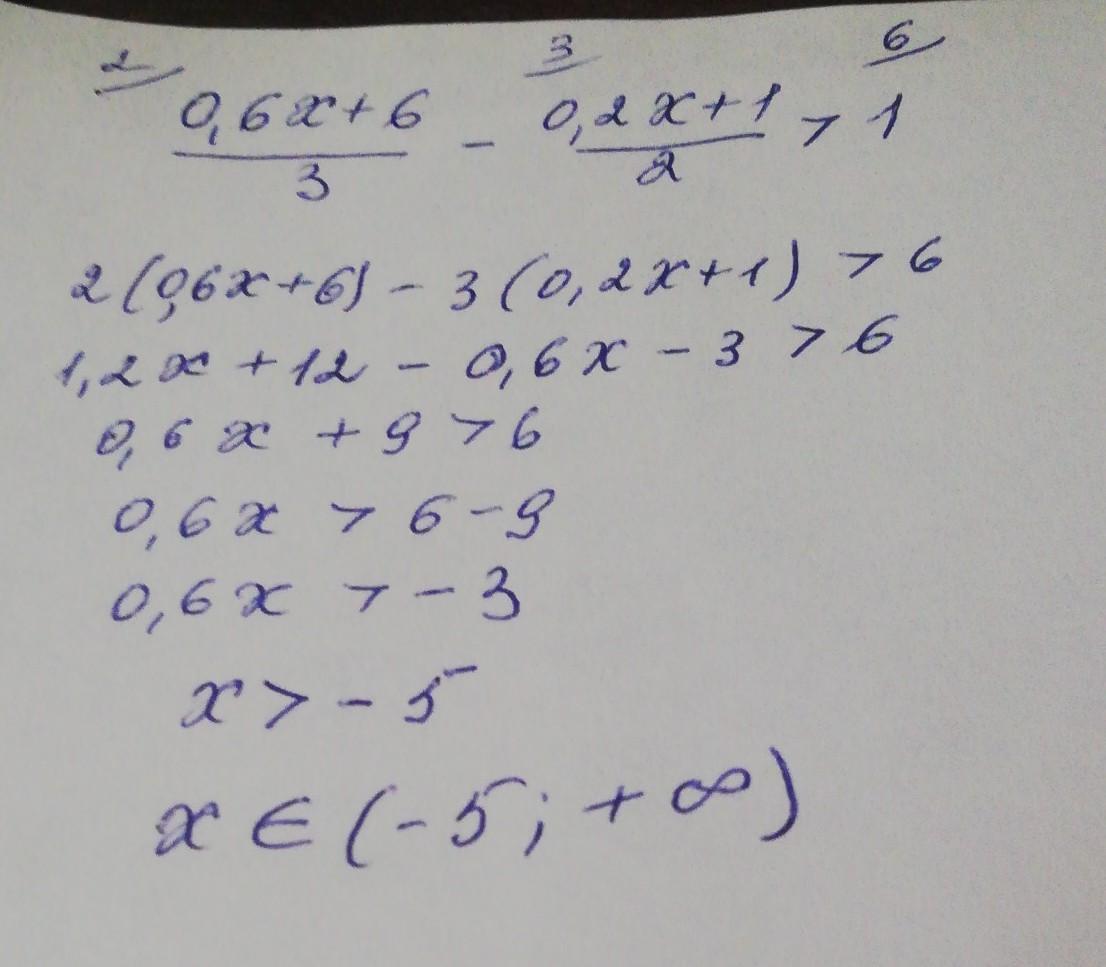 2 3 6
0,6x+6 - 0,2x+1 > 1
3 2
2(0,6x+6) - 3(0,2x+1) > 6
1,2x + 12 - 0,6x - 3 > 6
0,6x + 9 > 6
0,6x > 6 - 9
0,6x > - 3
x > - 5
x ∈ (- 5; + ∞)